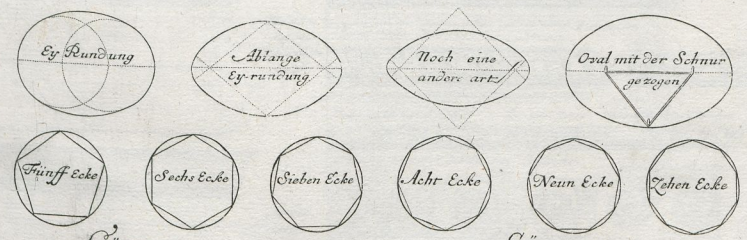 Ey Rundung
Ablange
Ey-rundung
Noch eine
andere art
Oval mit der Schnur
gezogen
Fünff Ecke
Sechs Ecke
Sieben Ecke
Acht Ecke
Neun Ecke
Zehen Ecke